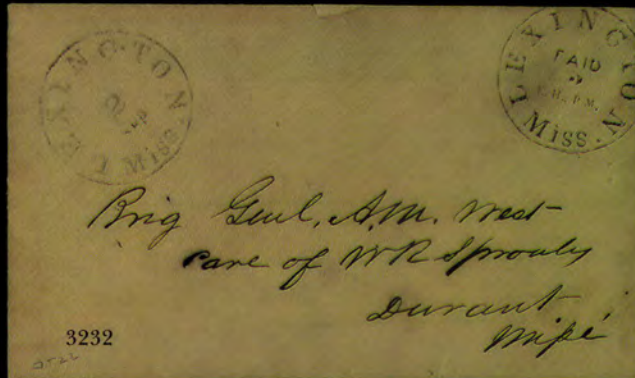 LEXINGTON Miss.
LEXINGTON Miss.
PAID
P.M.
Brig Genl, A.M. West
care of W R Sprouls
Durant
Mipi
3232